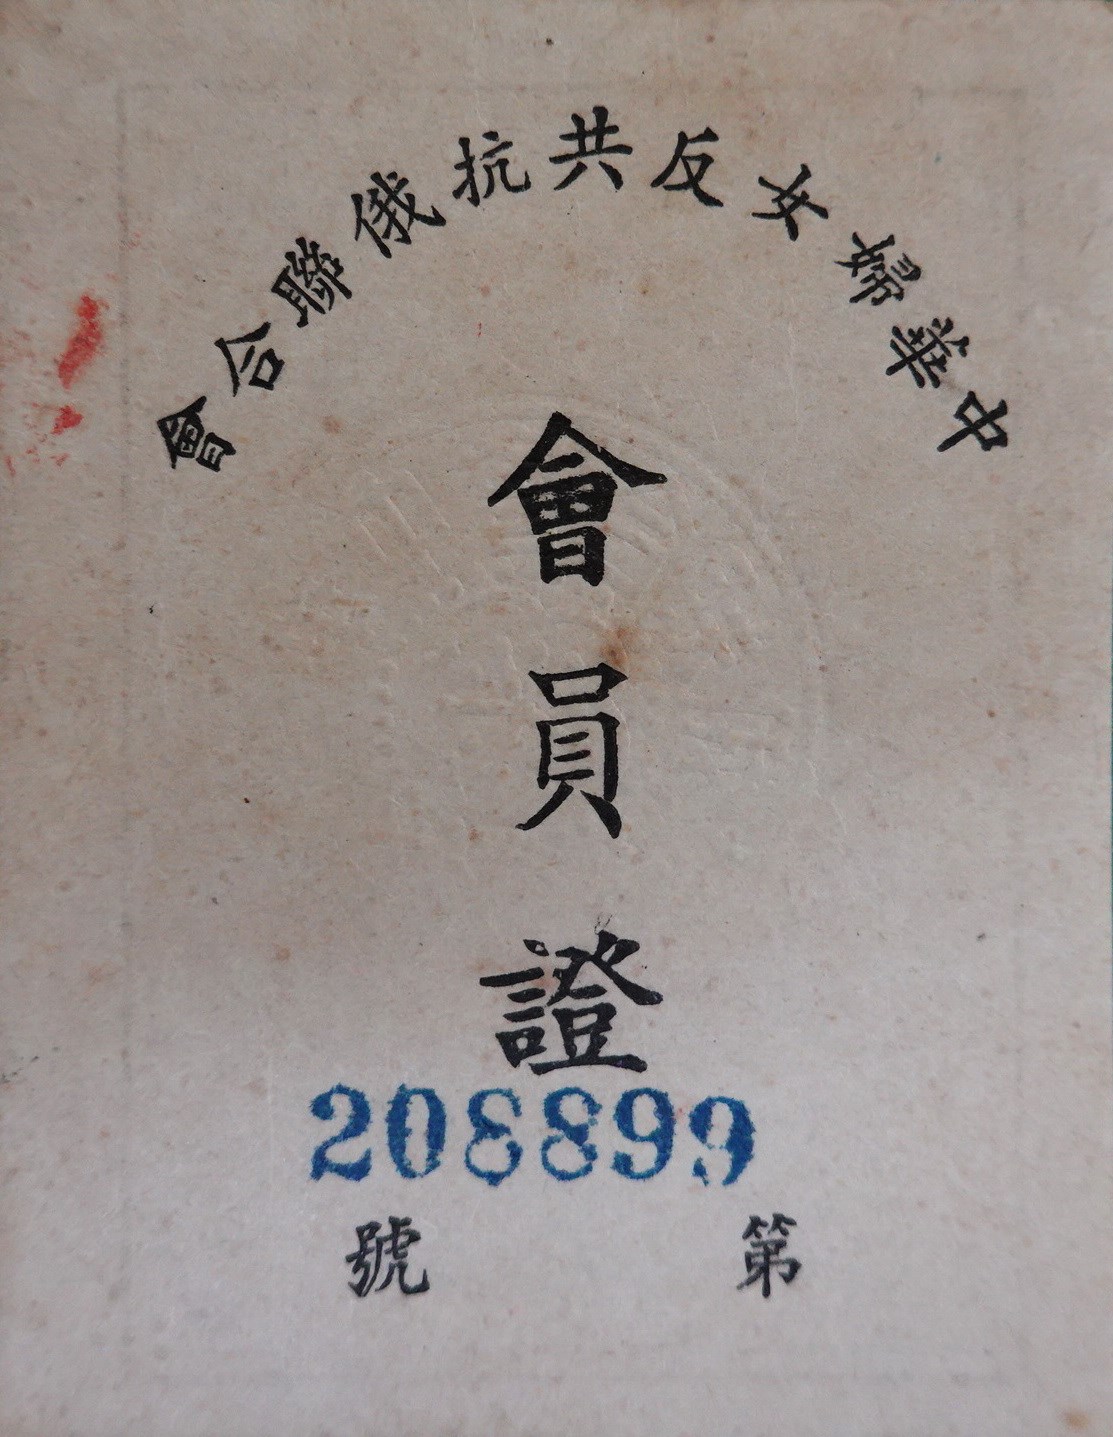 中華婦女反共抗俄聯合會
會員證
208899
第 號